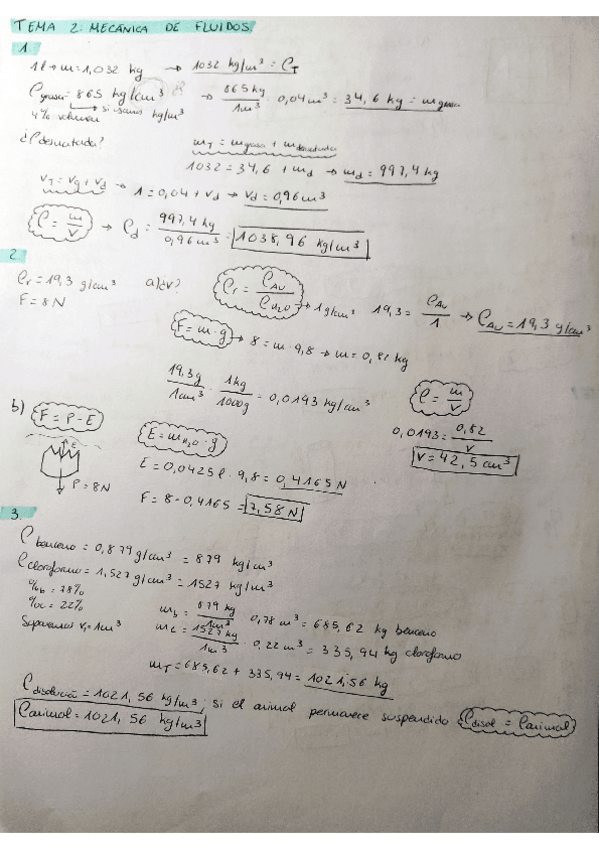 TEMA 2: MECÁNICA DE FLUIDOS
1.
1l → m=1,032 kg → 1032 kg/m³ = ρT
ρgrasa = 865 kg/cm³ → 865 kg/1m³ · 0,04 m³ = 34,6 kg = mgrasa
4% volumen si usamos kg/m³
¿ρdesnatada? mT = mgrasa + mdesnatada
1032 = 34,6 + md → md = 997,4 kg
VT = Vg + Vd → 1 = 0,04 + Vd → Vd = 0,96 m³
ρ = m/V → ρd = 997,4 kg/0,96 m³ = 1038,96 kg/m³
2.
ρr = 19,3 g/cm³ a) ¿V? ρr = ρAu/ρH2O → 1 g/cm³ 19,3 = ρAu/1 → ρAu = 19,3 g/cm³
F = 8 N
F = m · g → 8 = m · 9,8 → m = 0,82 kg
19,3g/1cm³ · 1kg/1000g = 0,0193 kg/cm³ ρ = m/V
0,0193 = 0,82/V
V = 42,5 cm³
b) F = P - E
E = mH2O · g
E
E = 0,0425 l · 9,8 = 0,4165 N
P = 8N
F = 8 - 0,4165 = 7,58 N
3.
ρbenceno = 0,879 g/cm³ = 879 kg/m³
ρcloroformo = 1,527 g/cm³ = 1527 kg/m³
%b = 78%
%c = 22%
mb = 879 kg/1m³ · 0,78 m³ = 685,62 kg benceno
Suponemos V = 1m³ mc = 1527 kg/1m³ · 0,22 m³ = 335,94 kg cloroformo
mT = 685,62 + 335,94 = 1021,56 kg
ρdisolución = 1021,56 kg/m³; si el animal permanece suspendido ρdisol = ρanimal
ρanimal = 1021,56 kg/m³